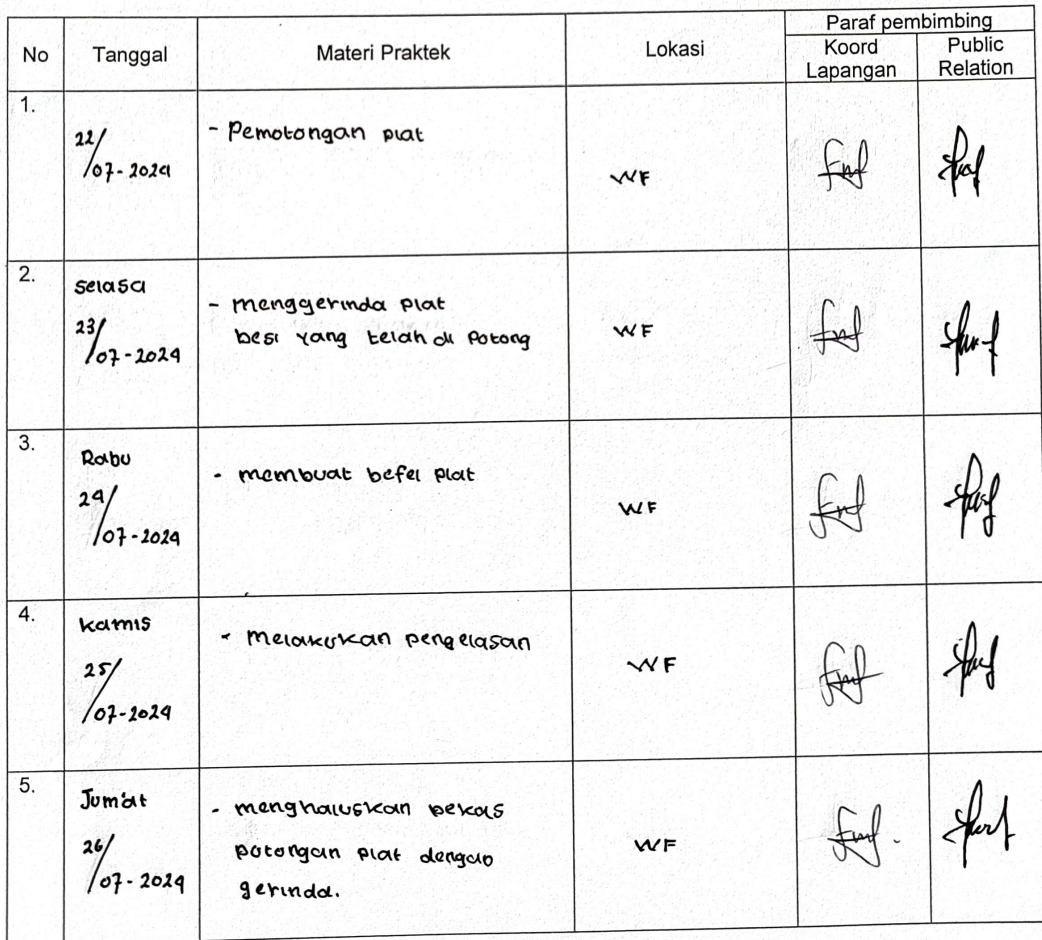 No Tanggal Materi Praktek Lokasi Paraf pembimbing
Koord Lapangan Public Relation
1.
22/07-2024
- Pemotongan plat
WF
2.
Selasa
23/07-2024
- menggerinda plat
besi yang telah di potong
WF
3.
Rabu
24/07-2024
- membuat befel plat
WF
4.
kamis
25/07-2024
- Melakukan pengelasan
WF
5.
Jum'at
26/07-2024
- menghaluskan bekas
potongan plat dengan
gerinda.
WF